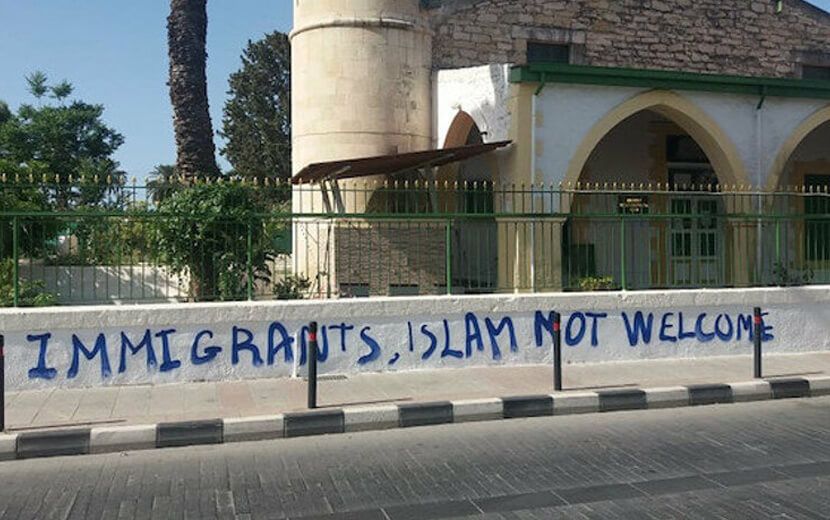 IMMIGRANTS, ISLAM NOT WELCOME